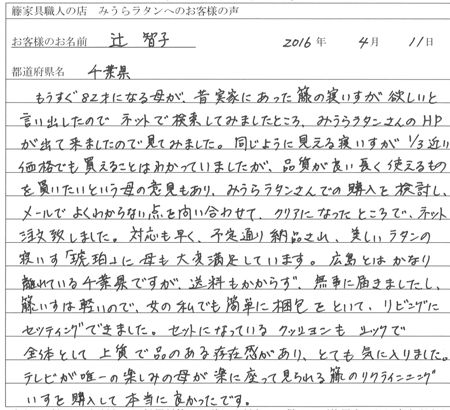 籐家具職人の店　みうらラタンへのお客様の声
お客様のお名前　辻 智子　2016年 4月 11日
都道府県名　千葉県
もうすぐ82才になる母が、昔実家にあった籐の寝いすが欲しいと
言い出したので ネットで検索してみましたところ、みうらラタンさんのHP
が出て来ましたので見てみました。同じように見える寝いすが 1/3近い
価格でも買えることはわかっていましたが、品質が良い長く使えるもの
を買いたいという母の意見もあり、みうらラタンさんでの購入を検討し、
メールでよくわからない点を問い合わせて、クリアになったところで、ネット
注文致しました。対応も早く、予定通り納品され、美しいラタンの
寝いす「琥珀」に母も大変満足しています。広島とはかなり
離れている千葉県ですが、送料もかからず、無事に届きましたし、
籐いすは軽いので、女の私でも簡単に梱包をといて、リビングに
セッティングできました。セットになっているクッションもシックで
全体として上質で品のある存在感があり、とても気に入りました。
テレビが唯一の楽しみの母が楽に座って見られる籐のリクライニング
いすを購入して本当に良かったです。